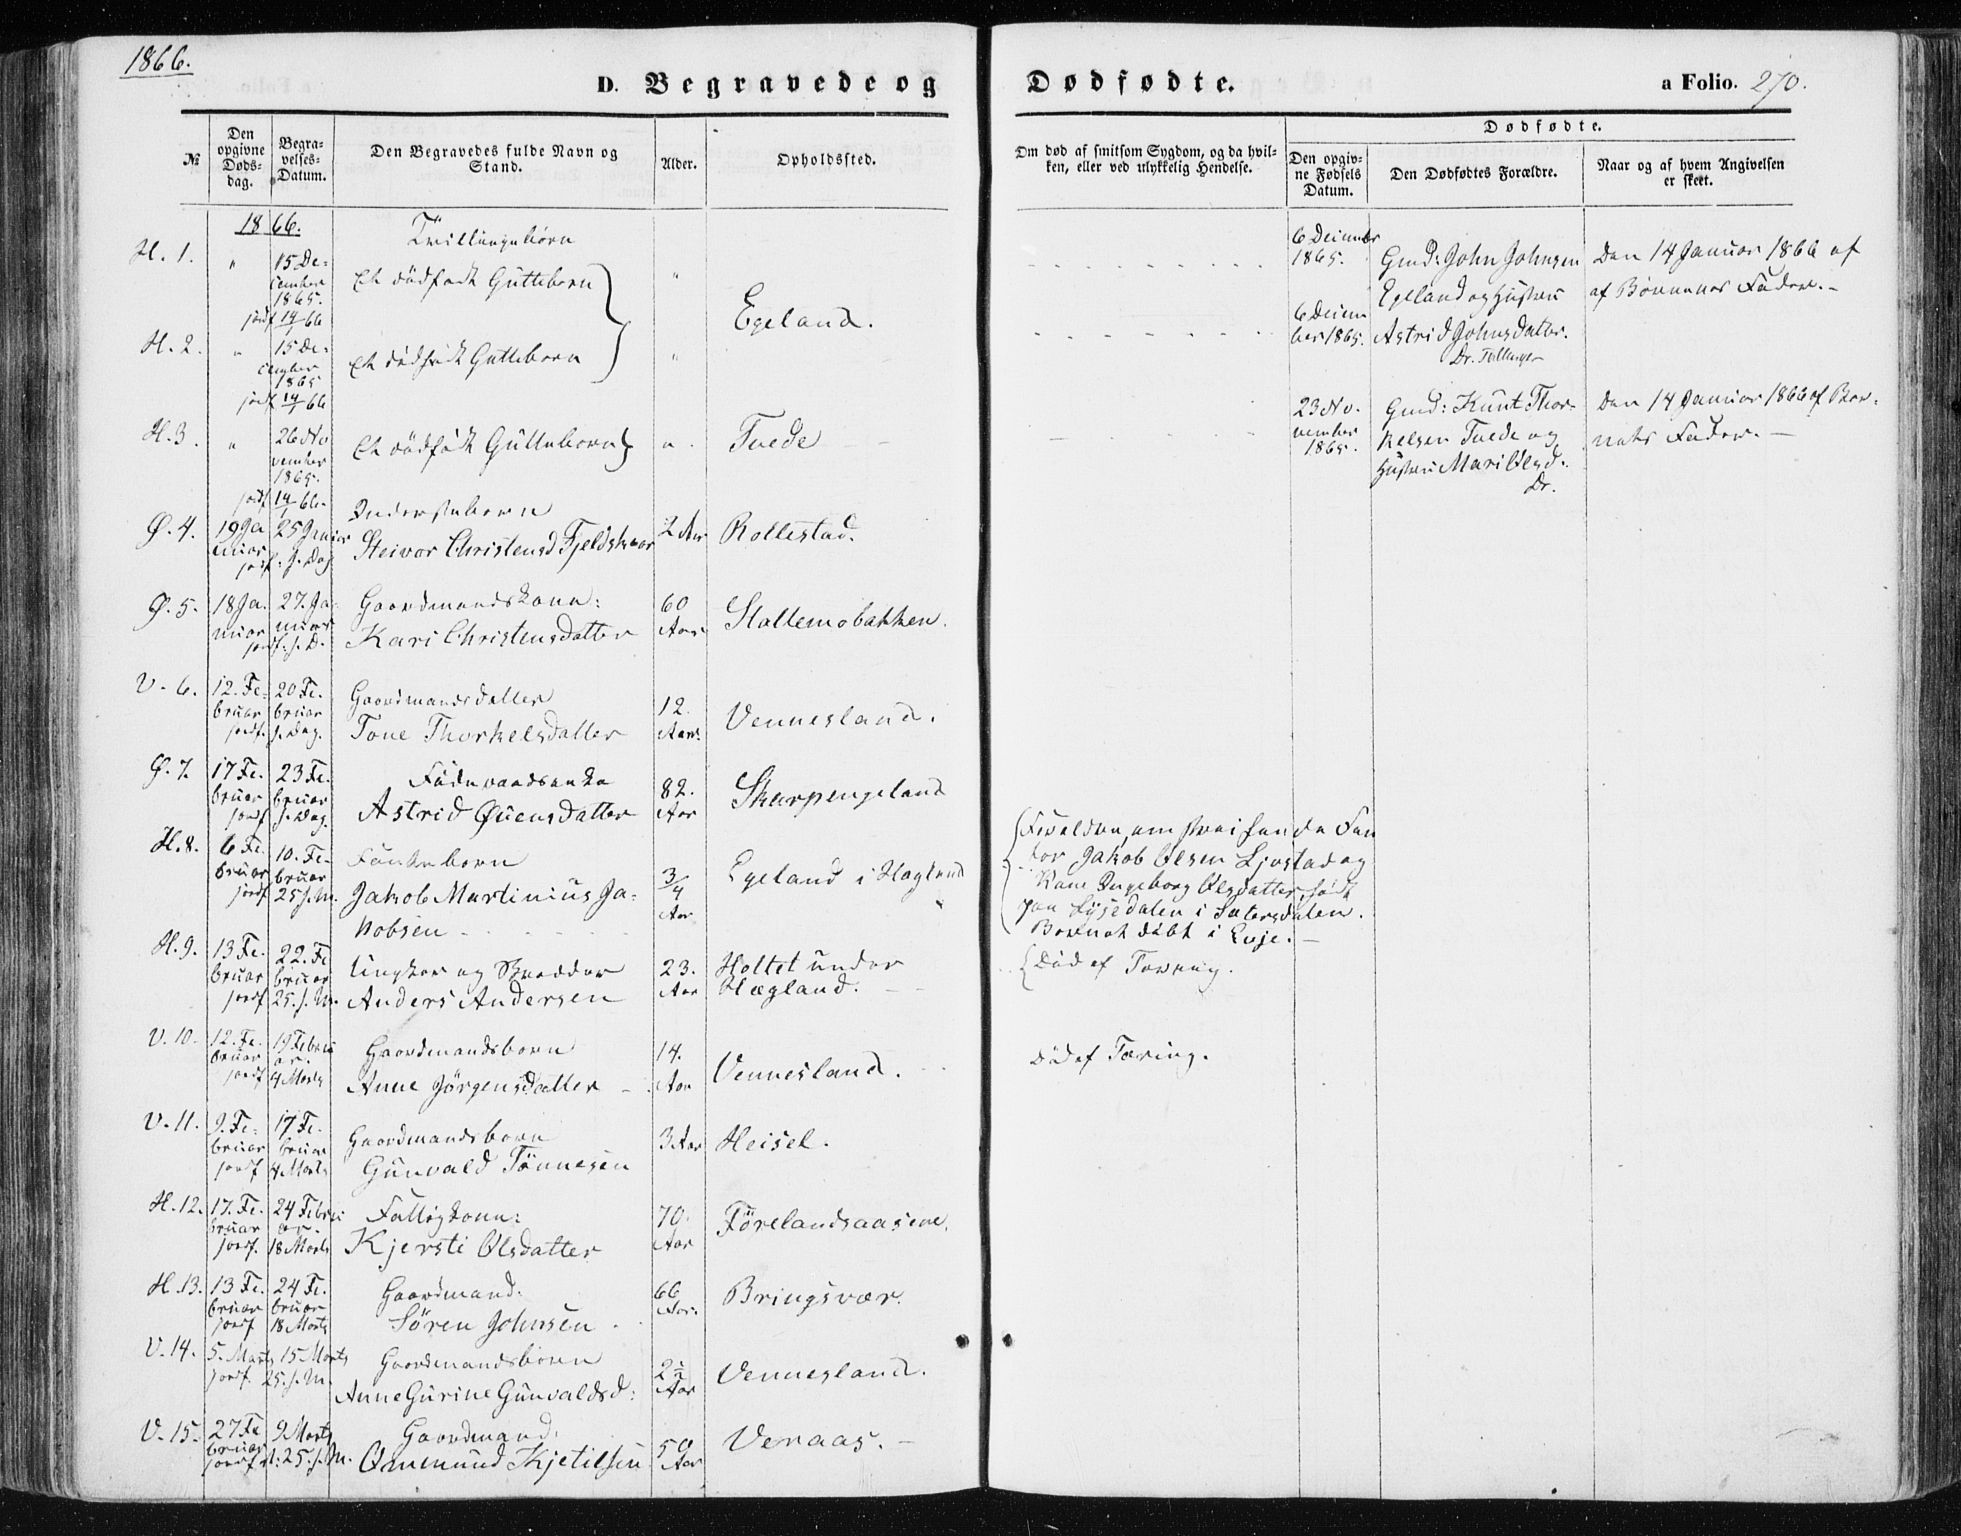 1866.
D. Begravede og Dødfødte.
a Folio. 270.
№
Den opgivne Døds-dag.
Begra-velses-Datum.
Den Begravedes fulde Navn og Stand.
Alder.
Opholdssted.
Om død af smitsom Sygdom, og da hvil-
ken, eller ved ulykkelig Hendelse.
Dødfødte.
Den opgiv-
ne Fødsels
Datum.
Den Dødfødtes Forældre.
Naar og af hvem Angivelsen
er skeet.
1866.
Tvillingebörn
H. 1. " 15 De-
cember
1865.
jordf 14/1 66
Et dödfödt Guttebarn "
Egeland.
6 December
1865.
Gmd: John Johnsen
Egeland og Hustru
Astrid Johnsdatter.
Dr. Tvillinger
Den 14 Januar 1866 af
af Börnenes Fader.-
H. 2. " 15 De-
cember
1865
jordf 14/1 66
Et dödfödt Guttebarn "
6 Decem
ber 1865.
H. 3. " 26 No
vember
1865.
jordf 14/1 66.
Et dödfödt Guttebarn } "
Tvede
23 No-
vember
1865.
Gmd: Knut Thor-
kelsen Tvede og
Hustru Mari Olsd.
Dr.
Den 14 Januar 1866 af Bar-
nets Fader. -
Ø. 4. 19 Ja
nuar
25 Januar
jordf. s. Dag
Inderstebarn
Steivor Christensd Fjeldskaar
2 Aar
Rollestad.
Ø. 5. 18 Ja.
nuar
27. Ja-
nuar
jordf. s. D.
Gaardmandskone:
Kari Christensdatter
60
Aar
Stallemobakken.
V. 6. 12. Fe-
bruar
20 Fe.
bruar
jordf. s. Dag.
Gaardmandsdatter
Tone Thorkelsdatter
12.
Aar.
Vennesland.
Ø. 7. 17 Fe.
bruar
23 Fe.
bruar
jordf s. Dag.
Föderaadsenke
Astrid Øuensdatter
82.
Aar
Skarpengeland
H. 8. 6 Fe.
bruar
10. Fe-
bruar
jordf 25 s. M.
Fantebarn
Jakob Martinius Ja-
kobsen
3/4
Aar
Egeland i Hægland
Forældre, omstreifende Fan
ter Jakob Olsen Ljostad og
Kone Ingeborg Olsdatter, födt
paa Lysedalen i Sætersdalen.
Barnet döbt i Evje. -
H. 9. 13 Fe.
bruar
22. Fe
bruar
jordf 25. s. M.
Ungkar og Skredder
Anders Andersen
23.
Aar
Holtet under
Hægland.
Död af Tæring.
V. 10. 12. Fe.
bruar
19 Febru
ar.
jordf 4 Marts
Gaardmandsbarn
Anne Jörgensdatter
14.
Aar
Vennesland.
Död af Tæring.
V. 11. 9. Fe-
bruar
17 Fe.
bruar
jordf 4 Marts
Gaardmandsbarn
Gunvald Tönnesen
3 Aar
Heisel.
H. 12. 17. Fe.
bruar
24 Febru
ar.
jordf. 18 Marts
Fattigkone:
Kjersti Olsdatter
70.
Aar
Förelandsaasene.
H. 13. 13 Fe.
bruar
24 Fe.
bruar
jordf 18 Marts
Gaardmand.
Sören Johnsen
66
Aar.
Bringsvær.
V. 14. 5. Marts
15 Marts
jordf. 25. s. M.
Gaardmandsbarn
Anne Gurine Gunvaldsd:
Aar
Vennesland.
V. 15. 27 Fe
bruar
9 Marts
jordf. d: 25. s. M.
Gaardmand.
Omund Kjetilsen
50
Aar
Veraas. -